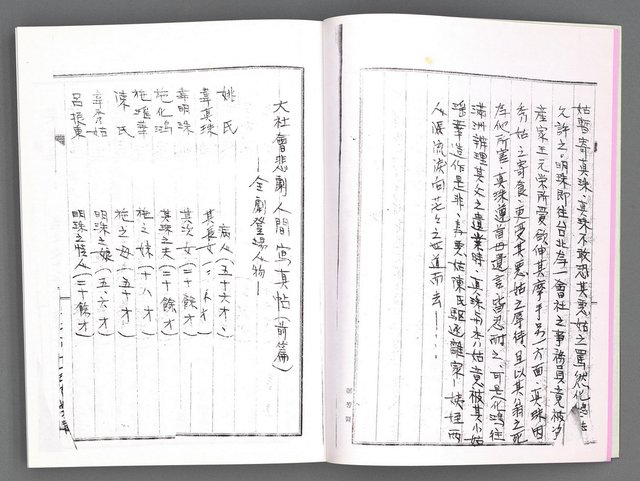 姑暫寄真珠、真珠不敢恐其惡姑之罵然化鴻
允許之。明珠即往台北為一會社之事務員竟被
產家王元榮所買欲伸其摩手另一方面、真珠因
秀姑之寄食、更受其惡姑之辱待且以其翁之死
為化所薦 真珠遵首母遺言皆忍耐之、可是化鴻往
滿洲辨理其父之遺業時、真珠與秀姑竟被其小姑
瑤華造作是非、為惡姑陳氏驅逐離家、姨妞兩
人淚流淚向茫々之世道而去
大社會悲劇人間寫真帖(前篇)
—全劇登場人物—
姚氏 病人(五十六才)
韋真珠 其長女(二八才)
韋明珠 其次女(二十餘才)
施化鴻 其珠之夫(二十餘才)
施瑤華 施之妹(十八才)
陳氏 施之母(五六才)
韋秀姑 明珠之娘(五、六才)
呂振東 明珠之情人(二十餘才)